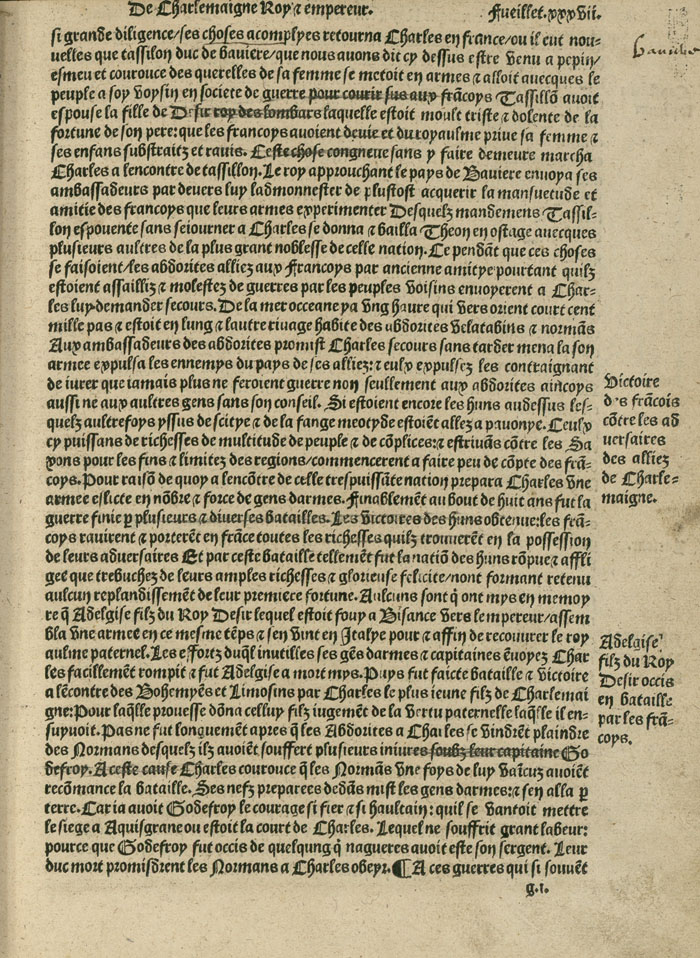 De Charlemaigne Roy ⁊ empereur.
Fueillet.xxxvii.
si grande diligence/ses choses acomplyes retourna Charles en france/ou il eut nou-
uelles que tassilon duc de bauiere/que nous auons dit cy dessus estre venu a pepin/
esmeu et courouce des querelles de sa femme se metoit en armes ⁊ alloit auecques le
peuple a soy voysin en societe de guerre pour courir sus aux frãcoys Tassillõ auoit
espouse la fille de Desir roy des lombars laquelle estoit moult triste ⁊ dolente de la
fortune de son pere: que les francoys auoient deuie et du royaulme priue sa femme ⁊
ses enfans substraitz et rauis. Ceste chose congneue sans y faire demeure marcha
Charles a lencontre de tassillon. Le roy approuchant le pays de Bauiere enuoya ses
ambassadeurs par deuers luy ladmonnester de plustost acquerir la mansuetude et
amitie des francoys que leurs armes experimenter Desquelz mandemens Tassil-
lon espouente sans seiourner a Charles se donna ⁊ bailla Theon en ostage auecques
plusieurs aultres de la plus grant noblesse de celle nation. Ce pendãt que ces choses
se faisoient/les abdorites alliez aux Francoys par ancienne amitye pourtant quilz
estoient assailliz ⁊ molestez de guerres par les peuples voisins enuoyerent a Char-
les luy demander secours. De la mer occeane ya vng haure qui vers orient court cent
mille pas ⁊ estoit en lung ⁊ lautre riuage habite des abdorites velatabins ⁊ normãs
Aux ambassadeurs des abdorites promist Charles secours sans tarder mena la son
armee expulsa les ennemys du pays de ses alliez: ⁊ eulx expulsez les contraignant
de iurer que iamais plus ne feroient guerre non seullement aux abdorites aincoys
aussi ne aux aultres gens sans son conseil. Si estoient encore les huns audessus les-
quelz aultrefoys yssus de scitye ⁊ de la fange meotyde estoiẽt allez a pauonye. Ceulx
cy puissans de richesses de multitude de peuple ⁊ de cõplices: ⁊ estriuãs cõtre les Sa
xons pour les fins ⁊ limitez des regions/commencerent a faire peu de cõpte des frã-
coys. Pour raisõ de quoy a lencõtre de celle trespuissãte nation prepara Charles vne
armee eslicte en nõbre ⁊ force de gens darmes. Finablemẽt au bout de huit ans fut la
guerre finie p plusieurs ⁊ diuerses batailles. Les victoires des huns obtenue: les frã-
coys rauirent ⁊ porterẽt en frãce toutes les richesses quilz trouuerẽt en la possession
de leurs aduersaires Et par ceste bataille tellemẽt fut la natiõ des huns rõpue ⁊ affli
gee que trebuchez de leurs amples richesses ⁊ glorieuse felicite/nont formant retenu
aulcun replandissement de leur premiere fortune. Aulcuns sont q̃ ont mys en memoy
re q̃ Adelgise filz du Roy Desir lequel estoit fouy a Bisance vers lempereur/assem
bla vne armee en ce mesme tẽps ⁊ sen vint en Italye pour ⁊ affin de recouurer le roy
aulme paternel. Les effortz duq̃l inutilies ses gẽs darmes ⁊ capitaines ẽuoyez Char
les facillement rompit ⁊ fut Adelgise a mort mys. Puys fut faicte bataille ⁊ victoire
a lẽcontre des Bohemyẽs et Limosins par Charles le plus ieune filz de Charlemai
gne: Pour laq̃lle prouesse dõna celluy filz iugemẽt de la vertu paternelle laq̃lle il en-
suyuoit. Pas ne fut longuemẽt apres q̃ les Abdorites a Charles se vindrẽt plaindre
des Normans desquelz ilz auoiẽt souffert plusieurs iniures soubz leur capitaine Go
defroy. A ceste cause Charles courouce q̃ les Normãs vne foys de luy vaĩcuz auoiẽt
recõmance la bataille. Ses nefz preparees dedãs mist les gens darmes: ⁊ sen alla p
terre. Car ia auoit Godefroy le courage si fier ⁊ si haultain: quil se vantoit mettre
le siege a Aquisgrane ou estoit la court de Charles. Lequel ne souffrit grant labeur:
pource que Godefroy fut occis de quelqung q̃ nagueres auoit este son sergent. Leur
duc mort promisdrent les Normans a Charles obeyr. ¶ A ces guerres qui si souuẽt
g.i.
Victoire
des frãcois
cõtre les ad
uersaires
des alliez
de Charle-
maigne.
Adelgise
filz du Roy
Desir occis
en bataille
par les frã-
coys.